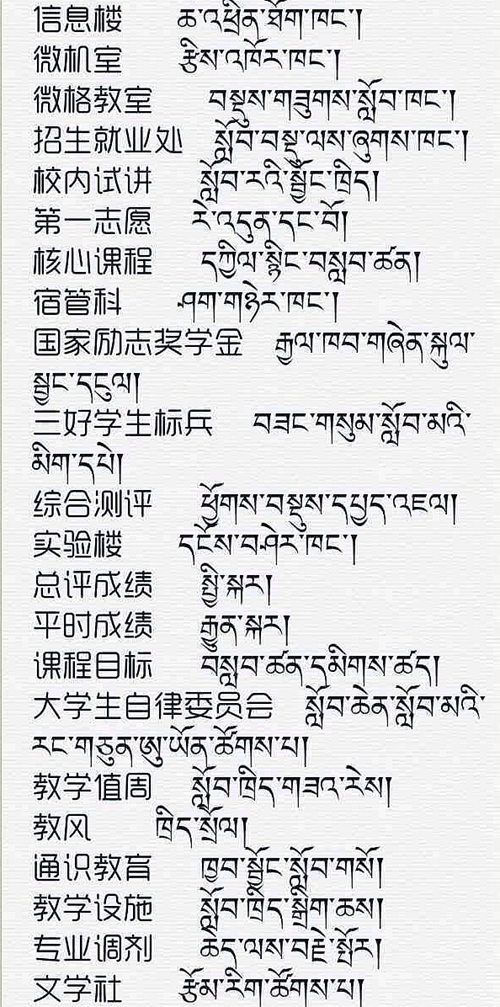 信息楼 ཆ་འཕྲིན་ཐོག་ཁང་།
微机室 རྩིས་འཁོར་ཁང་།
微格教室 བསྡུས་གཟུགས་སློབ་ཁང་།
招生就业处 སློབ་བསྡུ་ལས་ཞུགས་ཁང་།
校内试讲 སློབ་རའི་སྦྱོང་ཁྲིད།
第一志愿 རེ་འདུན་དང་བོ།
核心课程 དཀྱིལ་སྙིང་བསླབ་ཚན།
宿管科 ཤག་གཉེར་ཁང་།
国家励志奖学金 རྒྱལ་ཁབ་གཞེན་སྐུལ་
སྦྱང་དངུལ།
三好学生标兵 བཟང་གསུམ་སློབ་མའི་
མིག་དཔེ།
综合测评 ཕྱོགས་བསྡུས་དཔྱད་འཇལ།
实验楼 དངོས་བཤེར་ཁང་།
总评成绩 སྤྱི་སྐར།
平时成绩 རྒྱུན་སྐར།
课程目标 བསླབ་ཚན་དམིགས་ཚད།
大学生自律委员会 སློབ་ཆེན་སློབ་མའི་
རང་གཅུན་ཨུ་ཡོན་ཚོགས་པ།
教学值周 སློབ་ཁྲིད་གཟའ་རེས།
教风 ཁྲིད་སྲོལ།
通识教育 ཁྱབ་སྦྱོང་སློབ་གསོ།
教学设施 སློབ་ཁྲིད་སྒྲིག་ཆས།
专业调剂 ཆེད་ལས་བརྗེ་སྤོར།
文学社 རྩོམ་རིག་ཚོགས་པ།